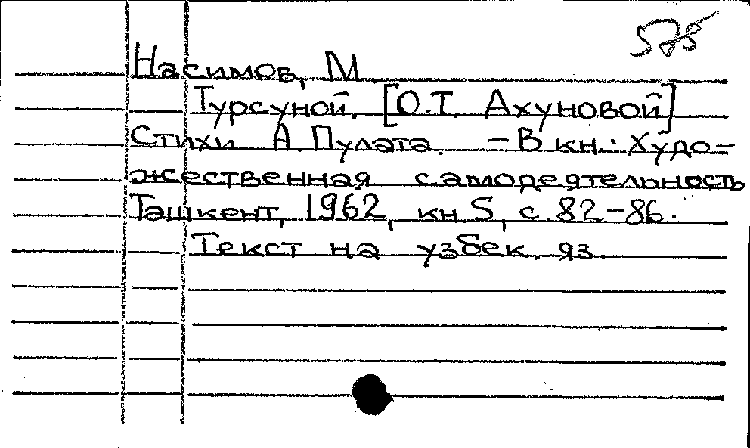 578
Насимов, М.
Турсуной. [О.Т. Ахуновой]
Стихи А. Пулата. — В кн.: Худо-
жественная самодеятельность
Ташкент, 1962, кн 5, с. 82-86.
Текст на узбек. яз.